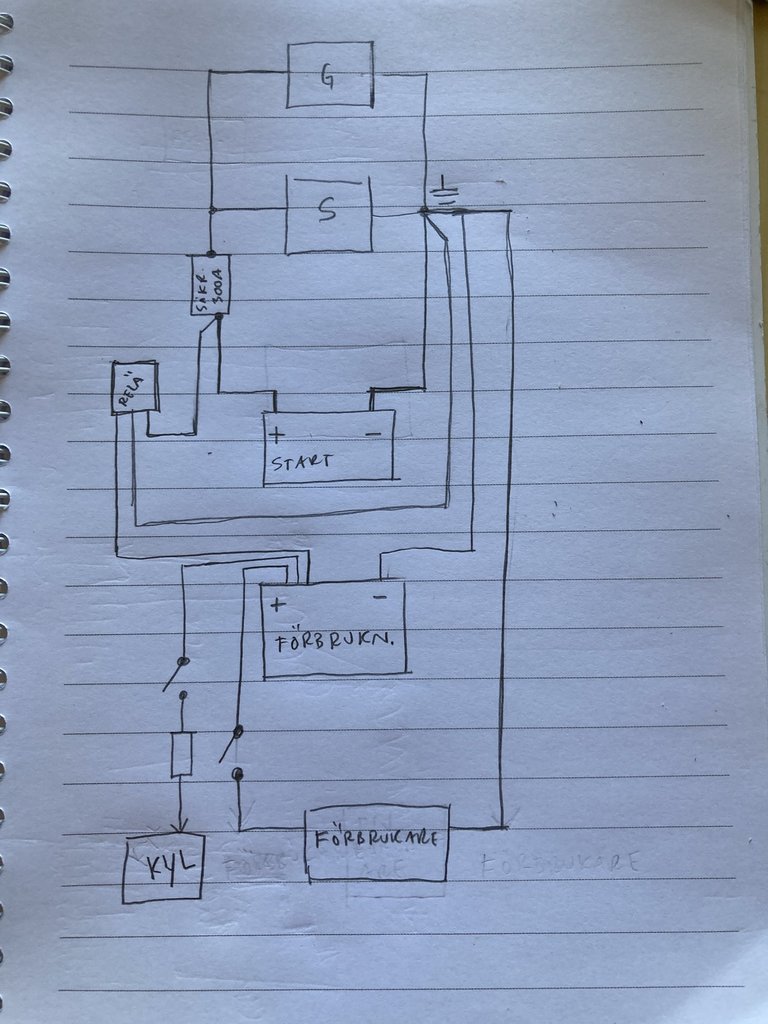 G
S
SÄKR.
300A
RELÄ
+ −
START
+ −
FÖRBRUKN.
FÖRBRUKARE
KYL
FÖRBRUKARE